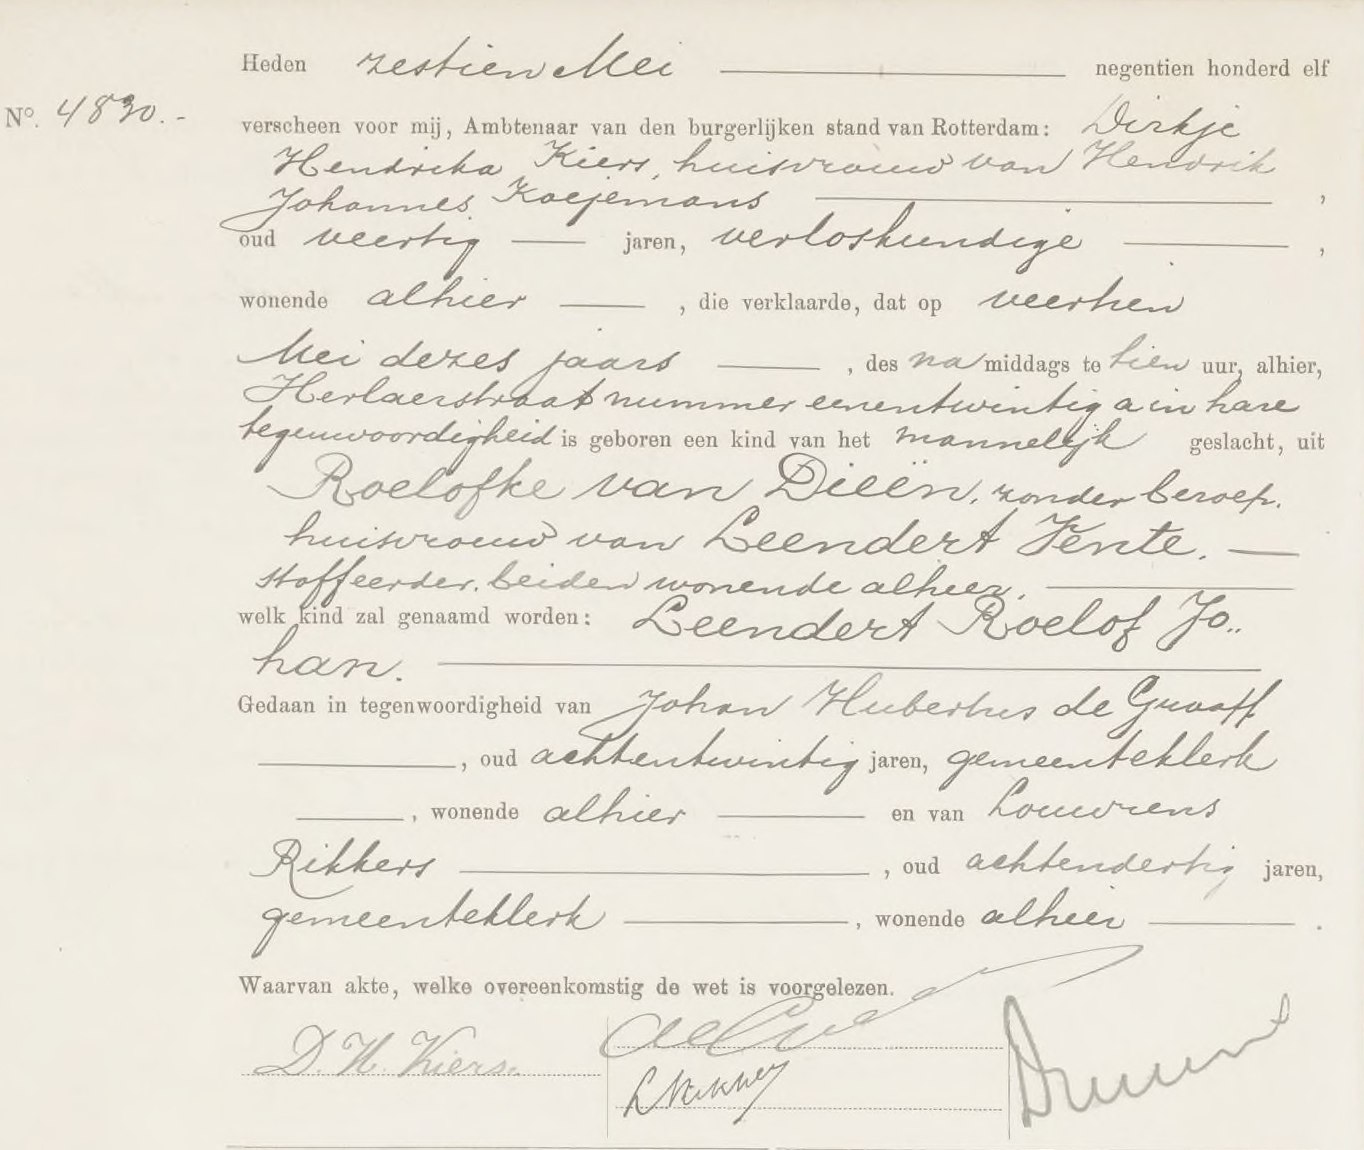 Heden zestien Mei negentien honderd elf
No. 4830.-
verscheen voor mij, Ambtenaar van den burgerlijken stand van Rotterdam: Dirkje
Hendrika Kiers, huisvrouw van Hendrik
Johannes Koojemans,
oud veertig jaren, verloskundige,
wonende alhier, die verklaarde, dat op veertien
Mei dezes jaars, des namiddags te tien uur, alhier,
Herlaerstraat nummer eenentwintig a in hare
tegenwoordigheid is geboren een kind van het mannelijk geslacht, uit
Roelofke van Dieën, zonder beroep,
huisvrouw van Leendert Vente,
stoffeerder, beiden wonende alhier,
welk kind zal genaamd worden: Leendert Roelof Jo..
han.
Gedaan in tegenwoordigheid van Johan Hubertus de Graaff
, oud achtentwintig jaren, gemeenteklerk
, wonende alhier en van Louwrens
Rikkers, oud achtendertig jaren,
gemeenteklerk, wonende alhier.
Waarvan akte, welke overeenkomstig de wet is voorgelezen.
D. H. Kiers.
L Rikkers